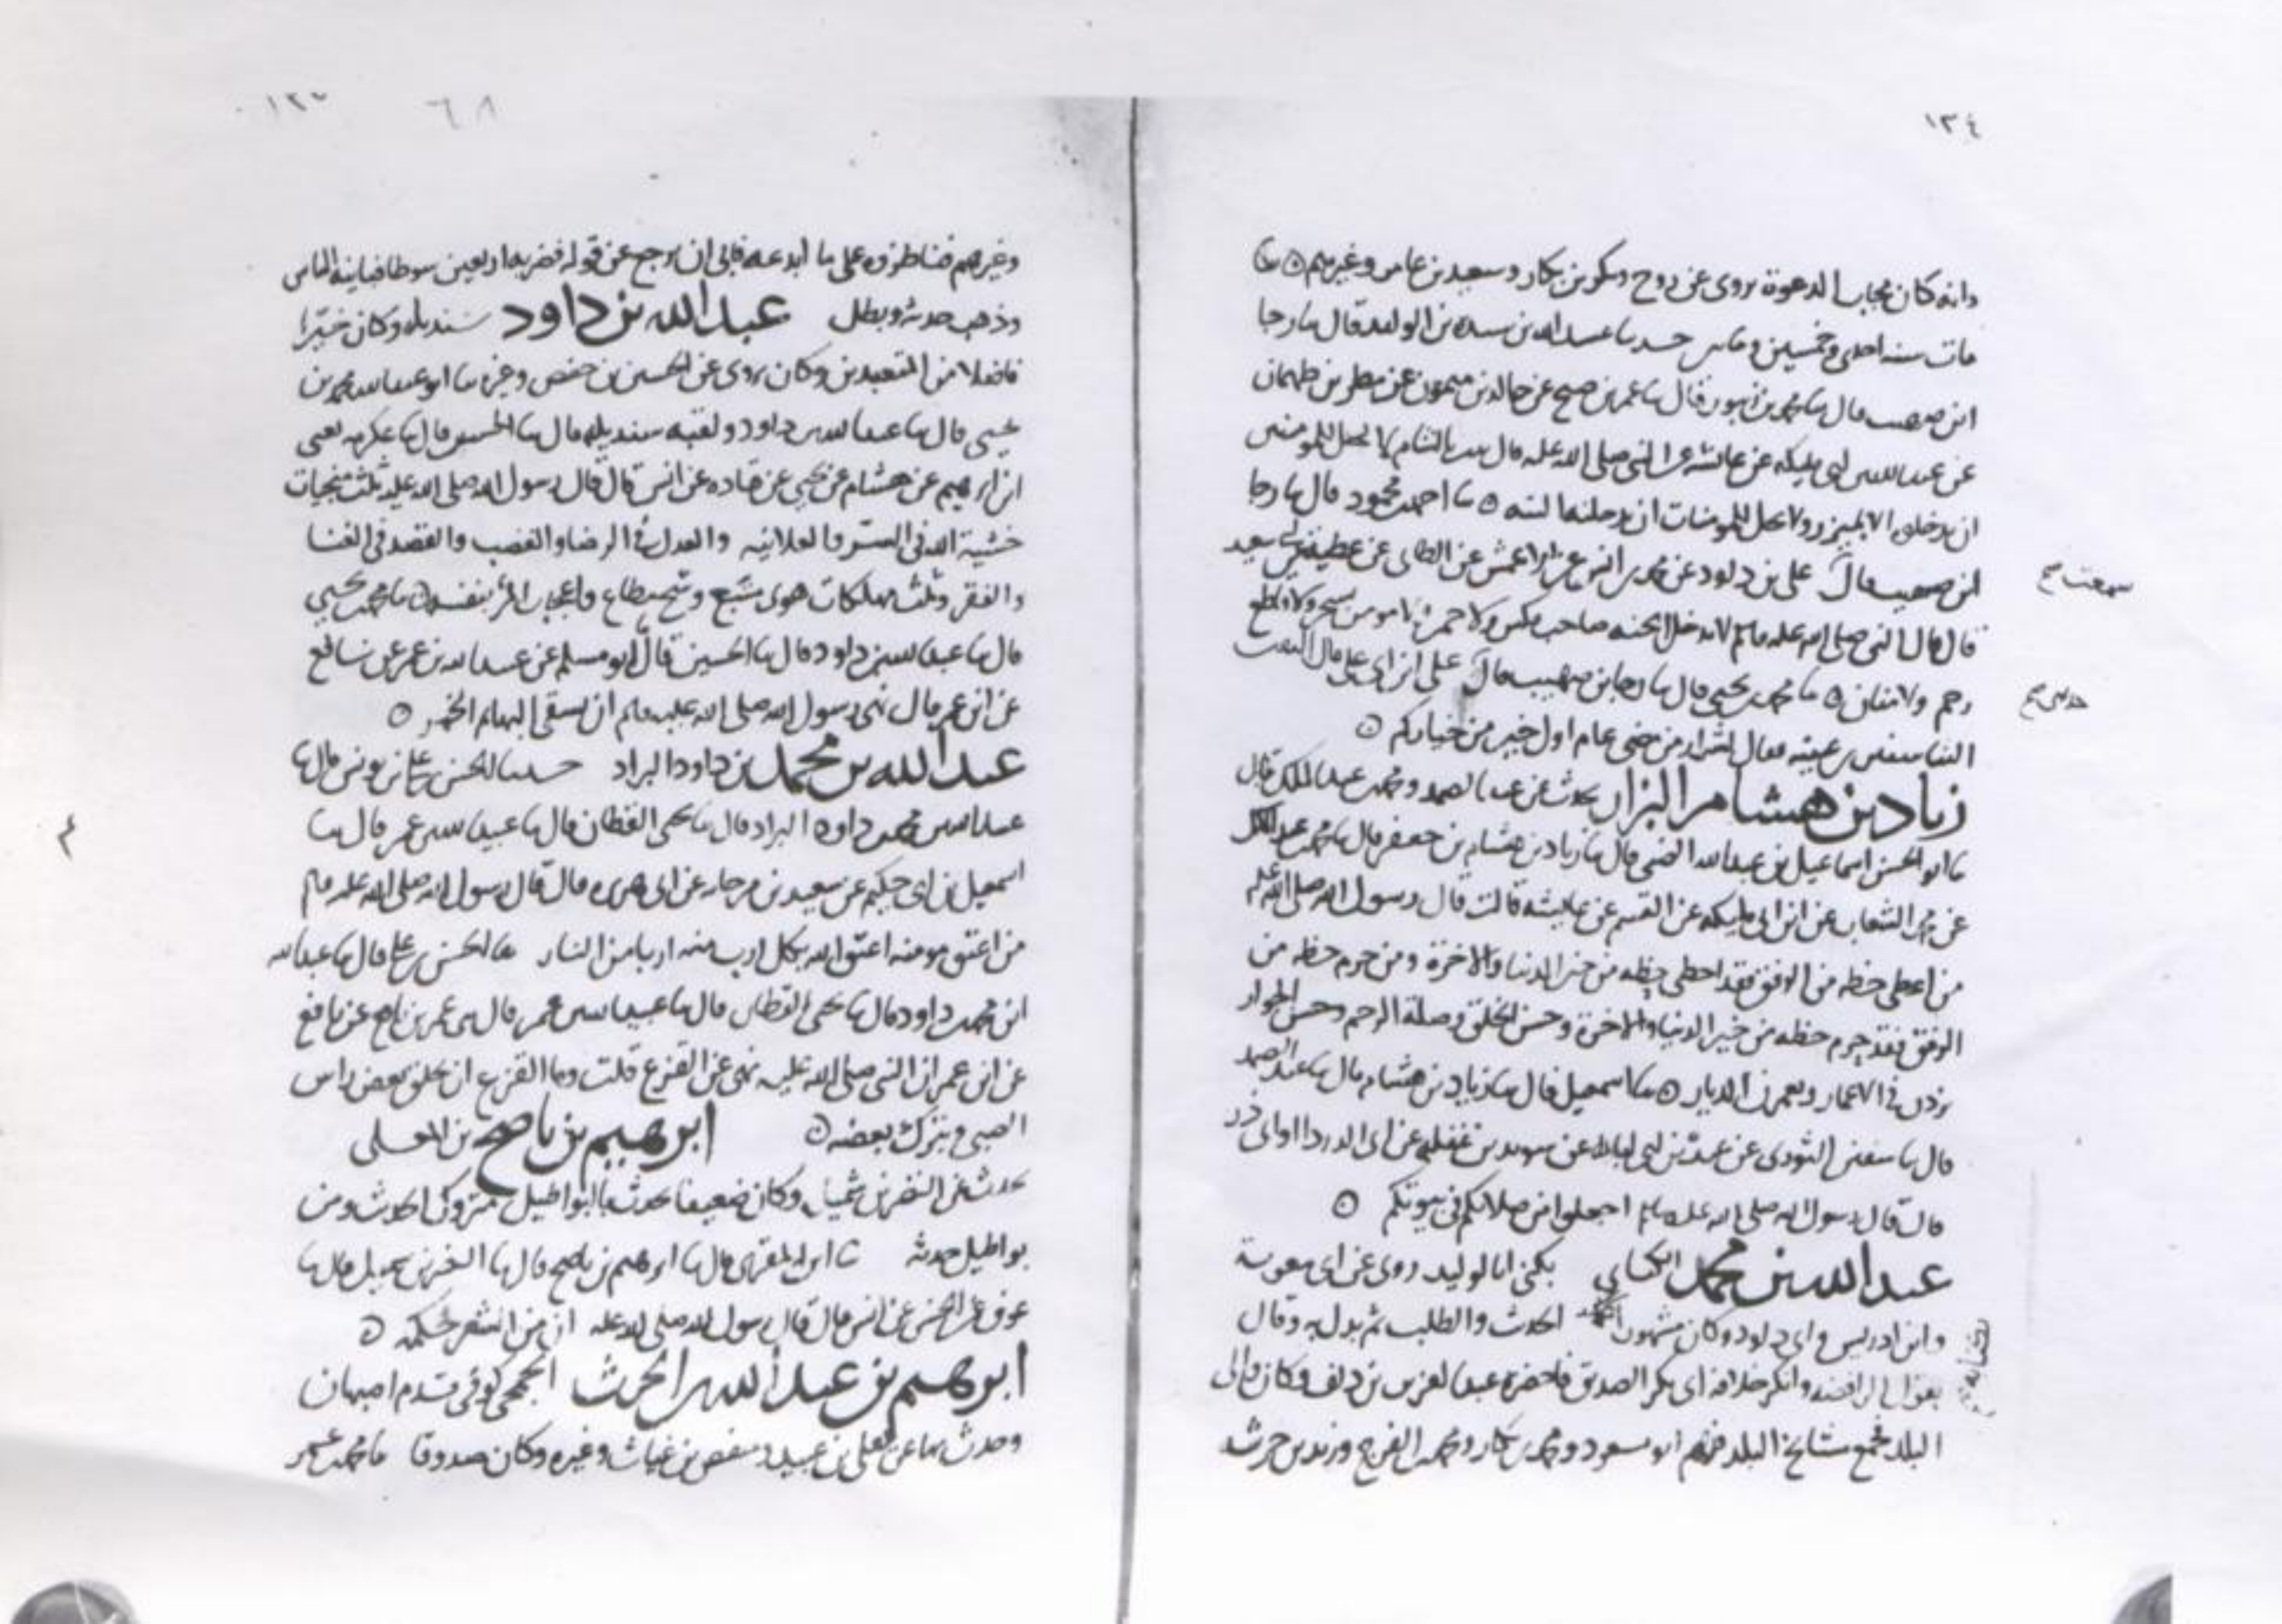 ١٣٤
وانه كان مجاب الدعوة يروى عن روح وبكر بن بكار وسعيد بن عامر وغيرهم
مات سنة احدى وخمسين ومايتين حدثنا عبدالله بن الوليد قال ثنا رجا
ابن صهيب قال ثنا قال ثنا عمر بن صبح عن خالد بن ميمون عن مطر بن طهمان
عن عبدالله بن ابي مليكة عن عائشة عن النبي صلى الله عليه قال بالشام لا يحل للمومنين
ان يدخلوه الا بميزر ولا يحل للمومنات ان يدخلنها البتة ثنا احمد بن محمود قال ثنا رجا
ابن صهيب قال علي بن داود عن محمد بن انس عن الاعمش عن الطائي عن عطية عن ابي سعيد
سمعت
قال قال النبي صلى الله عليه وسلم لا يدخل الجنة صاحب مكس ولا خمر ولا مومن بسحر ولا قاطع
رحم ولا منان ثنا محمد بن يحيى قال ثنا رجا بن صهيب قال علي
حدثني
الينا سفين بن عيينة فقال اشرار من مضى عام اول خير من خياركم
زياد بن هشام البزار يحدث عن عبد الصمد ومحمد بن عبد الملك قال
ثنا ابو الحسن اسماعيل بن عبدالله الضبي قال ثنا زياد بن هشام بن جعفر قال ثنا محمد بن عبد الملك
عن ابن ابي مليكة عن القسم عن عايشة قالت قال رسول الله صلى الله عليه وسلم
من اعطى حظه من الرفق فقد اعطى حظه من خير الدنيا والاخرة ومن حرم حظه من
الرفق فقد حرم حظه من خير الدنيا والاخرة وحسن الخلق وصلة الرحم وحسن الجوار
يزدن في الاعمار ويعمرن الديار ثنا اسمعيل قال ثنا زياد بن هشام قال ثنا عبد الصمد
قال ثنا سفين الثوري عن عبدة بن ابي لبابة عن سويد بن غفلة عن ابي الدردا او ابي ذر
قال قال رسول الله صلى الله عليه وسلم اجعلوا من صلاتكم في بيوتكم
عبد الله بن محمد الكناني يكنى ابا الوليد روى عن ابي معوية
وابن ادريس وابي داود وكان مشهورا الحديث والطلب ثم بدل به وقال
بقول الرافضة وانكر خلافة ابي بكر الصديق فاحضره عبد العزيز بن دلف وكان والي
البلد فجمع مشايخ البلد فيهم ابو مسعود ومحمد بن بكار ومحمد بن الفرج وزيد بن خرشة
٦٨
وغيرهم فناظروه على ما ابدعه فابى ان يرجع عن قوله فضربه اربعين سوطا فباينه الناس
وذهب حديثه وبطل عبد الله بن داود سنديلة وكان خيرا
فاضلا من المتعبدين وكان يروى عن الحسين بن حفص وغيره ثنا ابو عبدالله محمد بن
يحيى قال ثنا عبدالله بن داود ولقبه سنديلة قال ثنا الحسين قال ثنا عكرمة يعني
ابن ابرهيم عن هشام عن يحيى عن قتادة عن انس قال قال رسول الله صلى الله عليه ثلث منجيات
خشية الله في السر والعلانية والعدل في الرضا والغضب والقصد في الغنا
والفقر وثلث مهلكات هوى متبع وشح مطاع واعجاب المرء بنفسه ثنا محمد بن يحيى
قال ثنا عبدالله بن داود قال ثنا الحسين قال ابو مسلم عن عبيد الله بن عمر عن نافع
عن ابن عمر قال نهى رسول الله صلى الله عليه وسلم ان يسقى البهايم الخمر
عبد الله بن محمد بن داود البراد حدثنا الحسن بن علي بن يونس قال ثنا
عبدالله بن محمد بن داود البراد قال ثنا يحيى القطان قال ثنا عبيدالله بن عمر قال ثنا
اسمعيل بن ابي حكيم عن سعيد بن مرجانة عن ابي هريرة قال قال رسول الله صلى الله عليه وسلم
من اعتق مومنة اعتق الله بكل ارب منه اربا من النار ثنا الحسن بن علي قال ثنا عبدالله
ابن محمد بن داود قال ثنا يحيى القطان قال ثنا عبيدالله بن عمر قال عمر بن نافع عن نافع
عن ابن عمر ان النبي صلى الله عليه نهى عن القزع قلت وما القزع ان يحلق بعض راس
الصبي ويترك بعضه ابرهيم بن ناصح بن المعلى
يحدث عن النضر بن شميل وكان ضعيفا يحدث بالبواطيل متروك الحديث ومن
بواطيل حديثه قال ثنا ابرهيم بن ناصح قال ثنا النضر بن شميل قال ثنا
عوف عن الحسن عن انس قال قال رسول الله صلى الله عليه ان من الشعر حكمة
ابرهيم بن عبد الله بن الحرث الجمحي كوفي قدم اصبهان
وحدث بها عن يعلى بن عبيد وحفص بن غياث وغيره وكان صدوقا ثنا محمد بن عمر